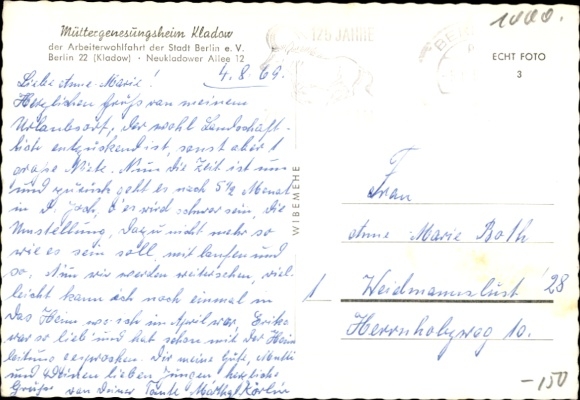 1000.
Müttergenesungsheim Kladow
der Arbeiterwohlfahrt der Stadt Berlin e. V.
Berlin 22 (Kladow) · Neukladower Allee 12
175 JAHRE
BERLIN
ECHT FOTO
3
4. 8. 69.
Liebe Anne-Marie!
Herzlichen Gruß von meinem
Urlaubsort, der wohl Landschaft-
lich entzückend ist, sonst aber 1
große Niete. Nun die Zeit ist um
und zurück geht es nach 5½ Monat
in d. Joch, o es wird schwer sein, die
Umstellung, dazu nicht mehr so
wie es sein soll, mit laufen und
so. Nun wir werden weitersehen, viel-
leicht kann ich noch einmal in
das Heim wo ich im April war, Erika
war so lieb und hat schon mit der Heim
leitung gesprochen. Dir meine Gute, Mutti
und lieben Jungen herzliche
Grüße von Deiner Tante Martha
WIBEMEHE
Frau
Anne-Marie Both
1 Weidmannslust 28
Herrnholzweg 10.
-150